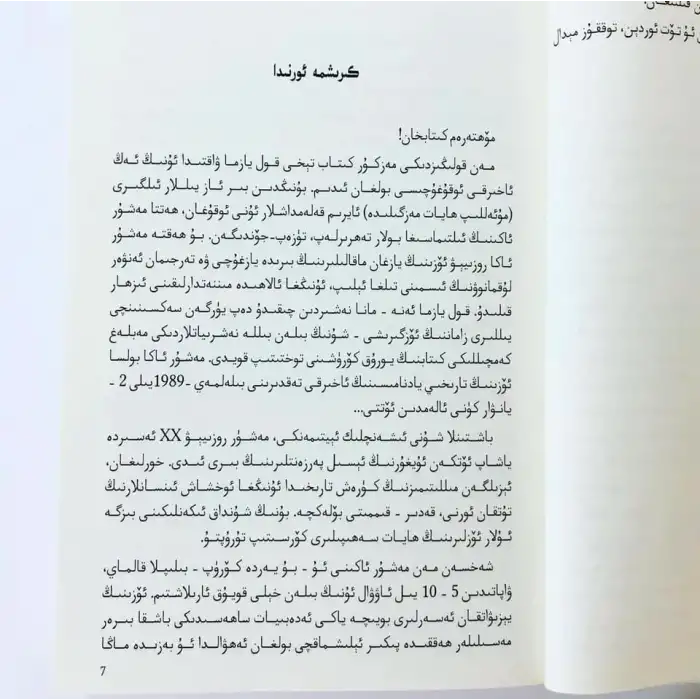 كىرىشمە ئورنىدا
مۆھتەرەم كىتابخان!
مەن قولىڭىزدىكى مەزكۇر كىتاب تېخى قول يازما ۋاقتىدا ئۇنىڭ ئەڭ
ئاخىرقى ئوقۇغۇچىسى بولغان ئىدىم. بۇنىڭدىن بىر ئاز يىللار ئىلگىرى
(مۇئەللىپ ھايات مەزگىلىدە) ئايرىم قەلەمداشلار ئۇنى ئوقۇغان، ھەتتا مەشۇر
ئاكىنىڭ ئىلتىماسىغا بولار تەھرىرلەپ، تۈزەپ-جۆندىگەن. بۇ ھەقتە مەشۇر
ئاكا روزىبېۋ ئۆزىنىڭ يازغان ماقالىلىرىنىڭ بىرىدە يازغۇچى ۋە تەرجىمان ئەنۋەر
لۇقمانوۋنىڭ ئىسمىنى تىلغا ئېلىپ، ئۇنىڭغا ئالاھىدە مىننەتدارلىقىنى ئىزھار
قىلىدۇ. قول يازما ئەنە - مانا نەشىردىن چىقىدۇ دەپ يۈرگەن سەكسىنىنچى
يىللىرى زاماننىڭ ئۆزگىرىشى - شۇنىڭ بىلەن بىللە نەشرىياتلاردىكى مەبلەغ
كەمچىللىكى كىتابنىڭ يورۇق كۆرۈشىنى توختىتىپ قويدى. مەشۇر ئاكا بولسا
ئۆزىنىڭ تارىخىي يادنامىسىنىڭ ئاخىرقى تەقدىرىنى بىلەلمەي -1989يىلى 2 -
يانۋار كۈنى ئالەمدىن ئۆتتى...
باشتىنلا شۇنى ئىشەنچلىك ئېيتىمەنكى، مەشۇر روزىبېۋ XX ئەسىردە
ياشاپ ئۆتكەن ئۇيغۇرنىڭ ئېسىل پەرزەنتلىرىنىڭ بىرى ئىدى. خورلىغان،
ئېزىلگەن مىللىتىمىزنىڭ كۈرەش تارىخىدا ئۇنىڭغا ئوخشاش ئىنسانلارنىڭ
تۇتقان ئورنى، قەدىر - قىممىتى بۆلەكچە. بۇنىڭ شۇنداق ئىكەنلىكىنى بىزگە
ئۇلار ئۆزلىرىنىڭ ھايات سەھىپىلىرى كۆرسىتىپ تۇرۇپتۇ.
شەخسەن مەن مەشۇر ئاكىنى ئۇ - بۇ يەردە كۆرۈپ - بىلىپلا قالماي،
ۋاپاتىدىن 5 - 10 يىل ئاۋۋال ئۇنىڭ بىلەن خېلى قويۇق ئارىلاشتىم. ئۆزىنىڭ
يېزىۋاتقان ئەسەرلىرى بويىچە ياكى ئەدەبىيات ساھەسىدىكى باشقا بىرەر
مەسىلىلەر ھەققىدە پىكىر ئېلىشماقچى بولغان ئەھۋالدا ئۇ بەزىدە ماڭا
7
ن قىلىنغان.
ئۇ تۆت ئوردېن، توققۇز مېدال